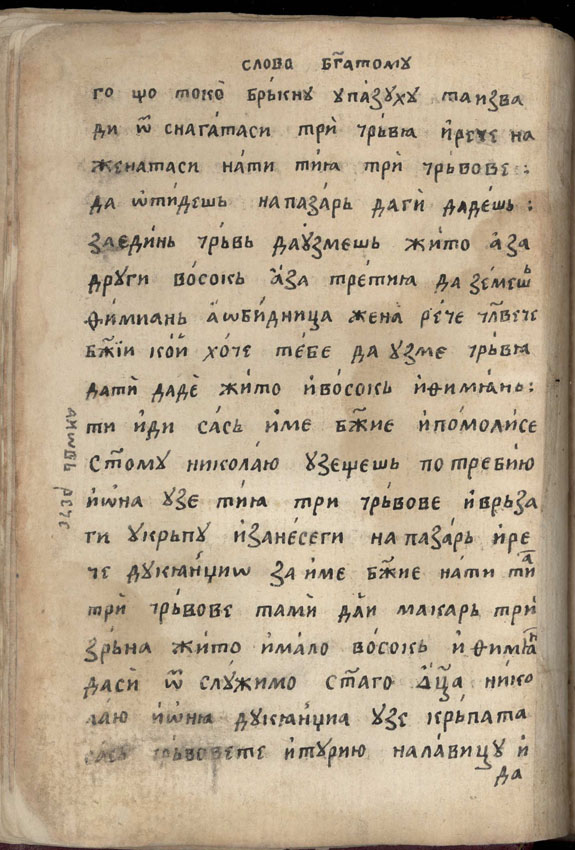 слова бг҃атомꙋ
го що токо̀ брькнꙋ ꙋпа́зꙋхꙋ таизва
ди ѿ снага́таси трѝ чрьвꙗ ѝрече на
женатаси на́ти ти́ꙗ трѝ чрьвове :
да ѡти́дешь напаза́рь даги̏ даде́шь :
заеди́нь чрьвь даꙋзмешь жи́то а́за
дрꙋги во́сокь а́за тре́тиꙗ да зе́мешь
ѳи́миань а́ѡби́дница жена̀ ре́че чл҃вече
бж҃їи кои̏ хо́че те́бе да ꙋзме чрьвꙗ
дати̏ дадѐ жи́то иво́сокь иѳимиа́нь :
ти и́ди са́сь и́ме бж҃ие ѝпо́моли́се
ст҃омꙋ никола́ю ꙋзещешь по требию
ѝѡ́на ꙋзе ти́ꙗ три чрьвове ѝврьза
ги ꙋкрьпꙋ ѝзане́сеги напаза́рь ѝре
че дꙋкꙗ́нџиѡ за и́ме бж҃ие на́ти тиа
трѝ чрьвове тами̏ да́й макарь трѝ
зрь́на жи́то ѝма́ло во́сокь ѝ ѳимиа́н
даси̏ ѿ слꙋ́жимо ст҃аго ѿц҃а нико
ла́ю ѝѡ́нꙗ дꙋкꙗ́нџиа ꙋзе крь́пата
сась чрьвовете ѝтꙋрию нала́вицꙋ ѝ
да
рече